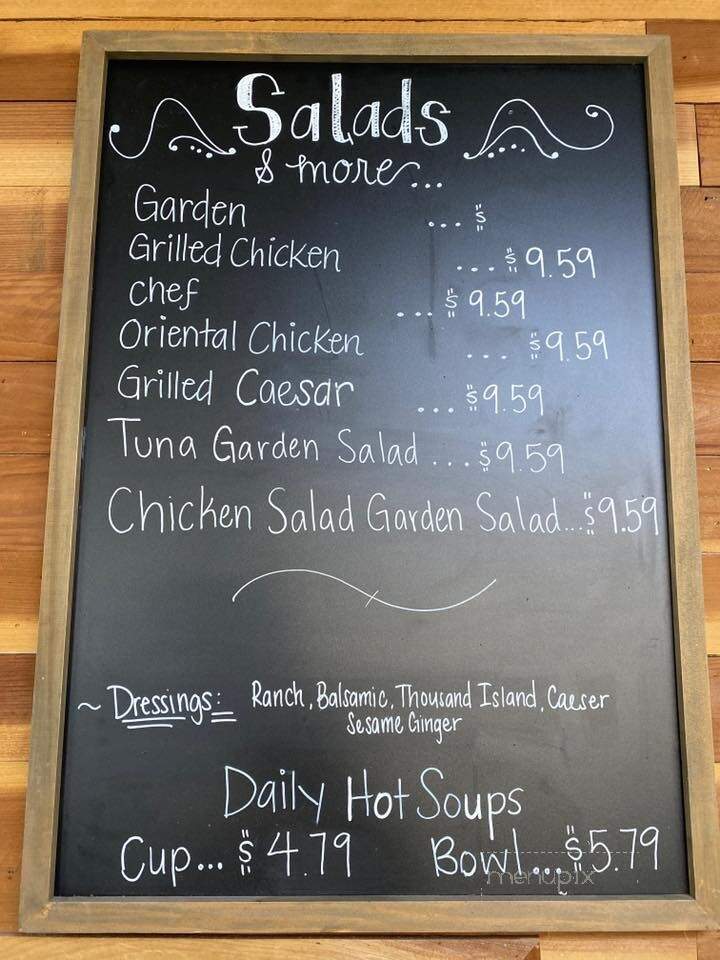 Salads
& more...
Garden ... $
Grilled Chicken ... $9.59
chef ... $9.59
Oriental Chicken ... $9.59
Grilled Caesar ... $9.59
Tuna Garden Salad ... $9.59
Chicken Salad Garden Salad... $9.59
~ Dressings: Ranch, Balsamic, Thousand Island, Caeser
Sesame Ginger
Daily Hot Soups
Cup... $4.79 Bowl... $5.79
menupix